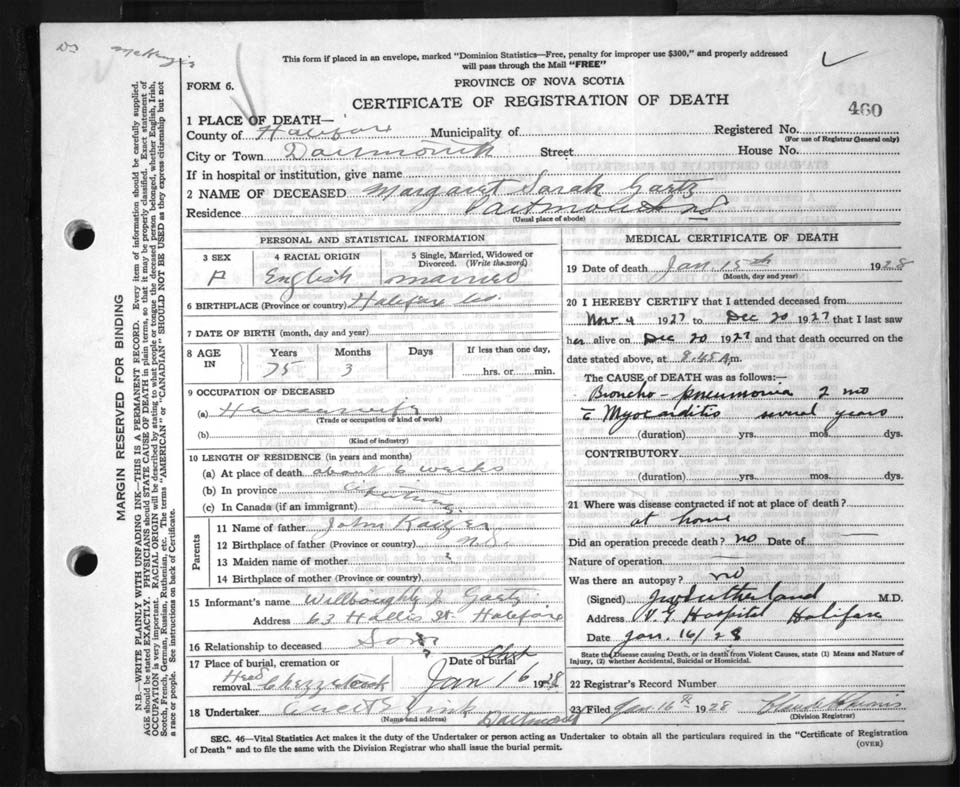 This form if placed in an envelope, marked "Dominion Statistics—Free, penalty for improper use $300," and properly addressed
will pass through the Mail "FREE"
FORM 6.
PROVINCE OF NOVA SCOTIA
CERTIFICATE OF REGISTRATION OF DEATH
460
1 PLACE OF DEATH—
County of Halifax Municipality of Registered No.
(For use of Registrar General only)
City or Town Dartmouth Street House No.
If in hospital or institution, give name
2 NAME OF DECEASED Margaret Sarah Gaetz
Residence Dartmouth NS
(Usual place of abode)
PERSONAL AND STATISTICAL INFORMATION
3 SEX 4 RACIAL ORIGIN 5 Single, Married, Widowed or Divorced. (Write the word)
F English married
6 BIRTHPLACE (Province or country) Halifax Co.
7 DATE OF BIRTH (month, day and year)
8 AGE IN Years Months Days If less than one day,
75 3 hrs. or min.
9 OCCUPATION OF DECEASED
(a) Housewife
(Trade or occupation or kind of work)
(b)
(Kind of industry)
10 LENGTH OF RESIDENCE (in years and months)
(a) At place of death about 6 weeks
(b) In province
(c) In Canada (if an immigrant)
Parents
11 Name of father John Kaizer
12 Birthplace of father (Province or country) N.S.
13 Maiden name of mother ?
14 Birthplace of mother (Province or country)
15 Informant's name Willoughby Gaetz
Address 63 Hollis St. Halifax
16 Relationship to deceased Son
17 Place of burial, cremation or removal Head Chezzetcook
Date of burial Jan 16 1928
18 Undertaker
(Name and address)
Dartmouth
MEDICAL CERTIFICATE OF DEATH
19 Date of death Jan 15th 1928
(Month, day and year)
20 I HEREBY CERTIFY that I attended deceased from
Nov 4 1927 to Dec 20 1927 that I last saw
her alive on Dec 20 1927 and that death occurred on the
date stated above, at 8.45 A m.
The CAUSE OF DEATH was as follows:—
Broncho-pneumonia 2 mo
c̄ Myocarditis several years
(duration) yrs. mos. dys.
CONTRIBUTORY
(duration) yrs. mos. dys.
21 Where was disease contracted if not at place of death?
at home
Did an operation precede death? no Date of
Nature of operation
Was there an autopsy? no
(Signed) Sutherland M.D.
Address V.G. Hospital Halifax
Date Jan. 16/28
State the Disease causing Death, or in death from Violent Causes, state (1) Means and Nature of
Injury, (2) whether Accidental, Suicidal or Homicidal.
22 Registrar's Record Number
23 Filed Jan 16th 1928
(Division Registrar)
SEC. 46—Vital Statistics Act makes it the duty of the Undertaker or person acting as Undertaker to obtain all the particulars required in the "Certificate of Registration
of Death" and to file the same with the Division Registrar who shall issue the burial permit.
(OVER)
MARGIN RESERVED FOR BINDING
N.B.—WRITE PLAINLY WITH UNFADING INK—THIS IS A PERMANENT RECORD. Every item of information should be carefully supplied.
AGE should be stated EXACTLY. PHYSICIANS should STATE CAUSE OF DEATH in plain terms, so that it may be properly classified. Exact statement of
OCCUPATION is very important. RACIAL ORIGIN will be described by stating to what people or tongue the deceased person belonged, whether English, Irish,
Scotch, French, German, Russian, Ruthenian, etc. The terms "AMERICAN" or "CANADIAN" SHOULD NOT BE USED as they express citizenship but not
a race or people. See instructions on back of Certificate.